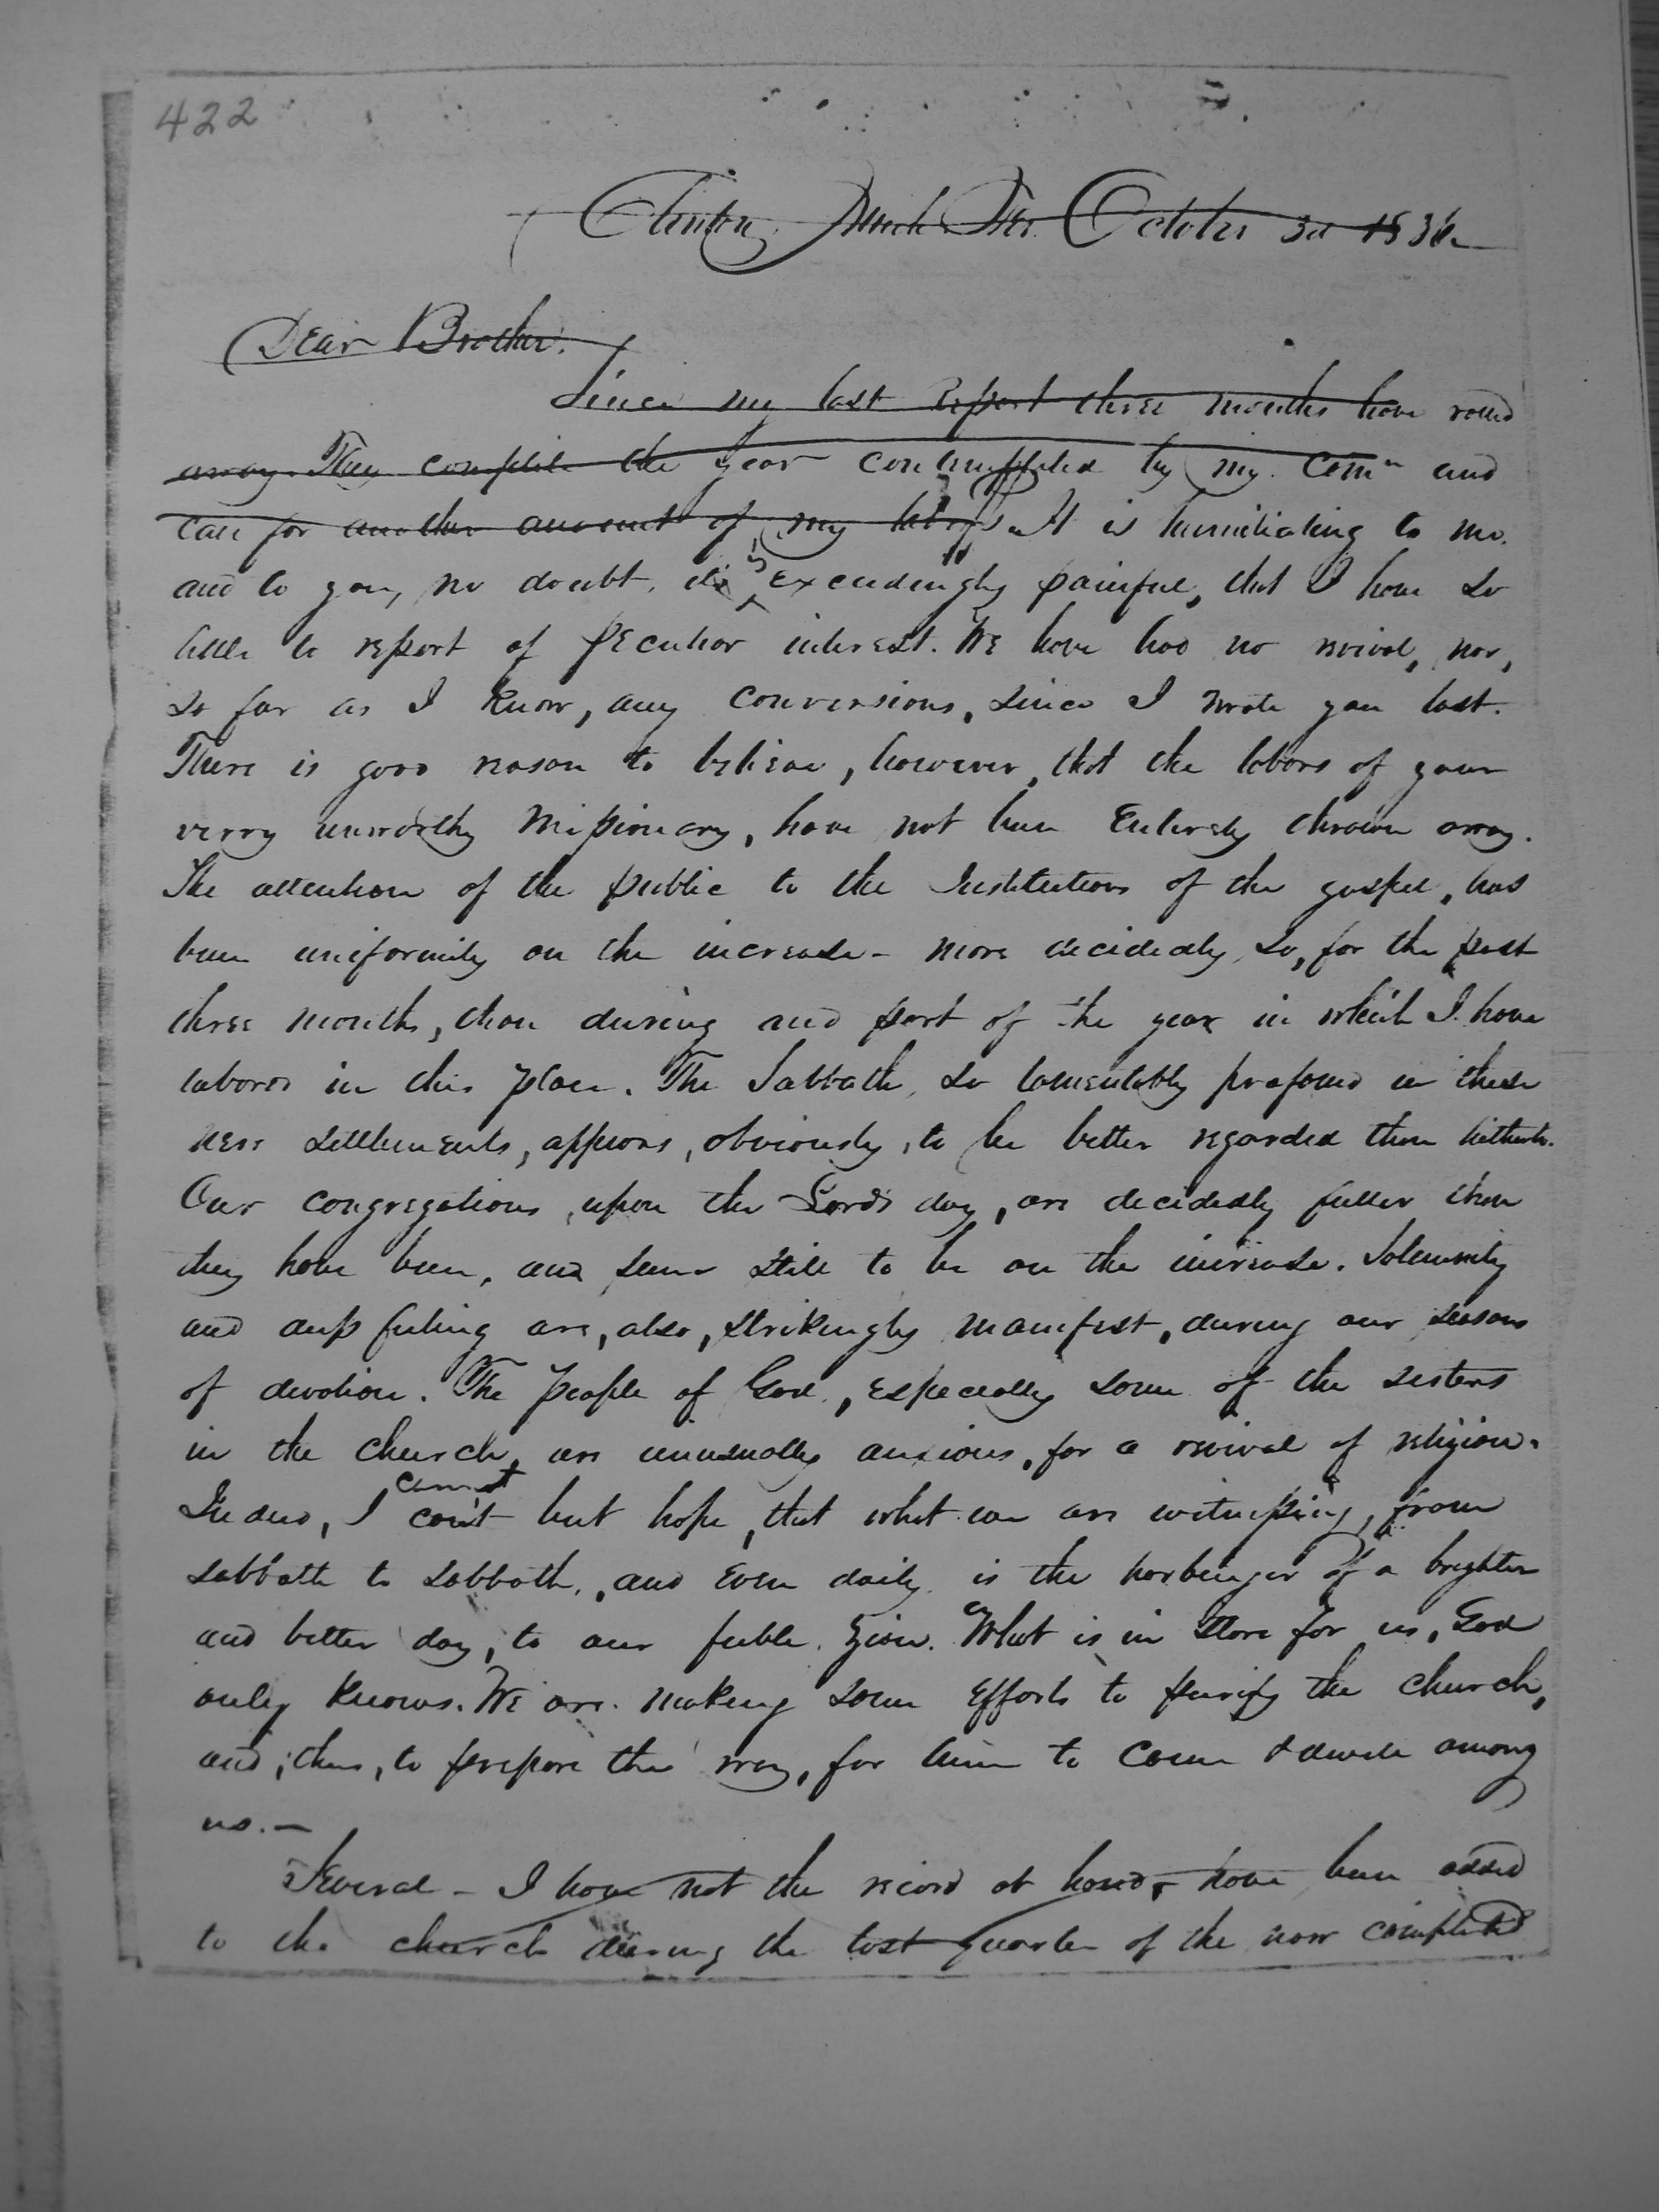 422
Clinton, Mich. Ter. October 3d 1836
Dear Brother.
Since my last Report three months have rolled
away. They complete the year contemplated by my Comn and
call for another account of my labors. It is humiliating to me
and to you, no doubt, it is exceedingly painful, that I have so
little to report of peculiar interest. We have had no revival, nor,
so far as I know, any conversions, since I wrote you last.
There is good reason to believe, however, that the labors of your
verry unworthy Missionary, have not been Entirely thrown away.
The attention of the public to the Institutions of the gospel, has
been uniformily on the increase - more decidedly so, for the past
three months, than during and part of the year in which I have
labored in this place. The Sabbath, so lamentably profaned in these
new settlements, appears, obviously, to be better regarded than hitherto.
Our congregations, upon the Lord's day, are decidedly fuller than
they have been, and seem still to be on the increase. Solemnity
and deep feeling are, also, strikingly manifest, during our seasons
of devotion. The people of God, especially some of the sisters
in the church, are unusually anxious, for a revival of religion.
Indeed, I cannot can't but hope, that what we are witnessing, from
sabbath to sabbath, and Even daily is the harbinger of a brighter
and better day, to our feeble Zion. What is in store for us, God
only knows. We are making some Efforts to purify the church,
and, thus, to prepare the way, for him to come & dwell among
us. —
Several - I have not the record at hand - have been added
to the church during the last quarter of the now completed